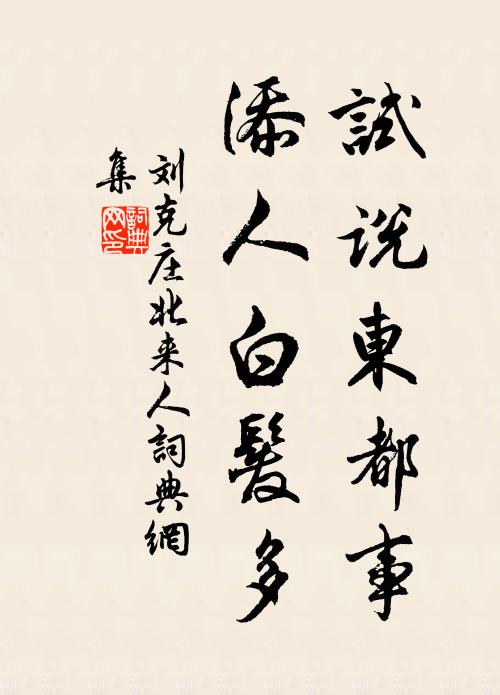 試説東都事
添人白髮多
刘克庄北来人詞典網
集
詞典网印